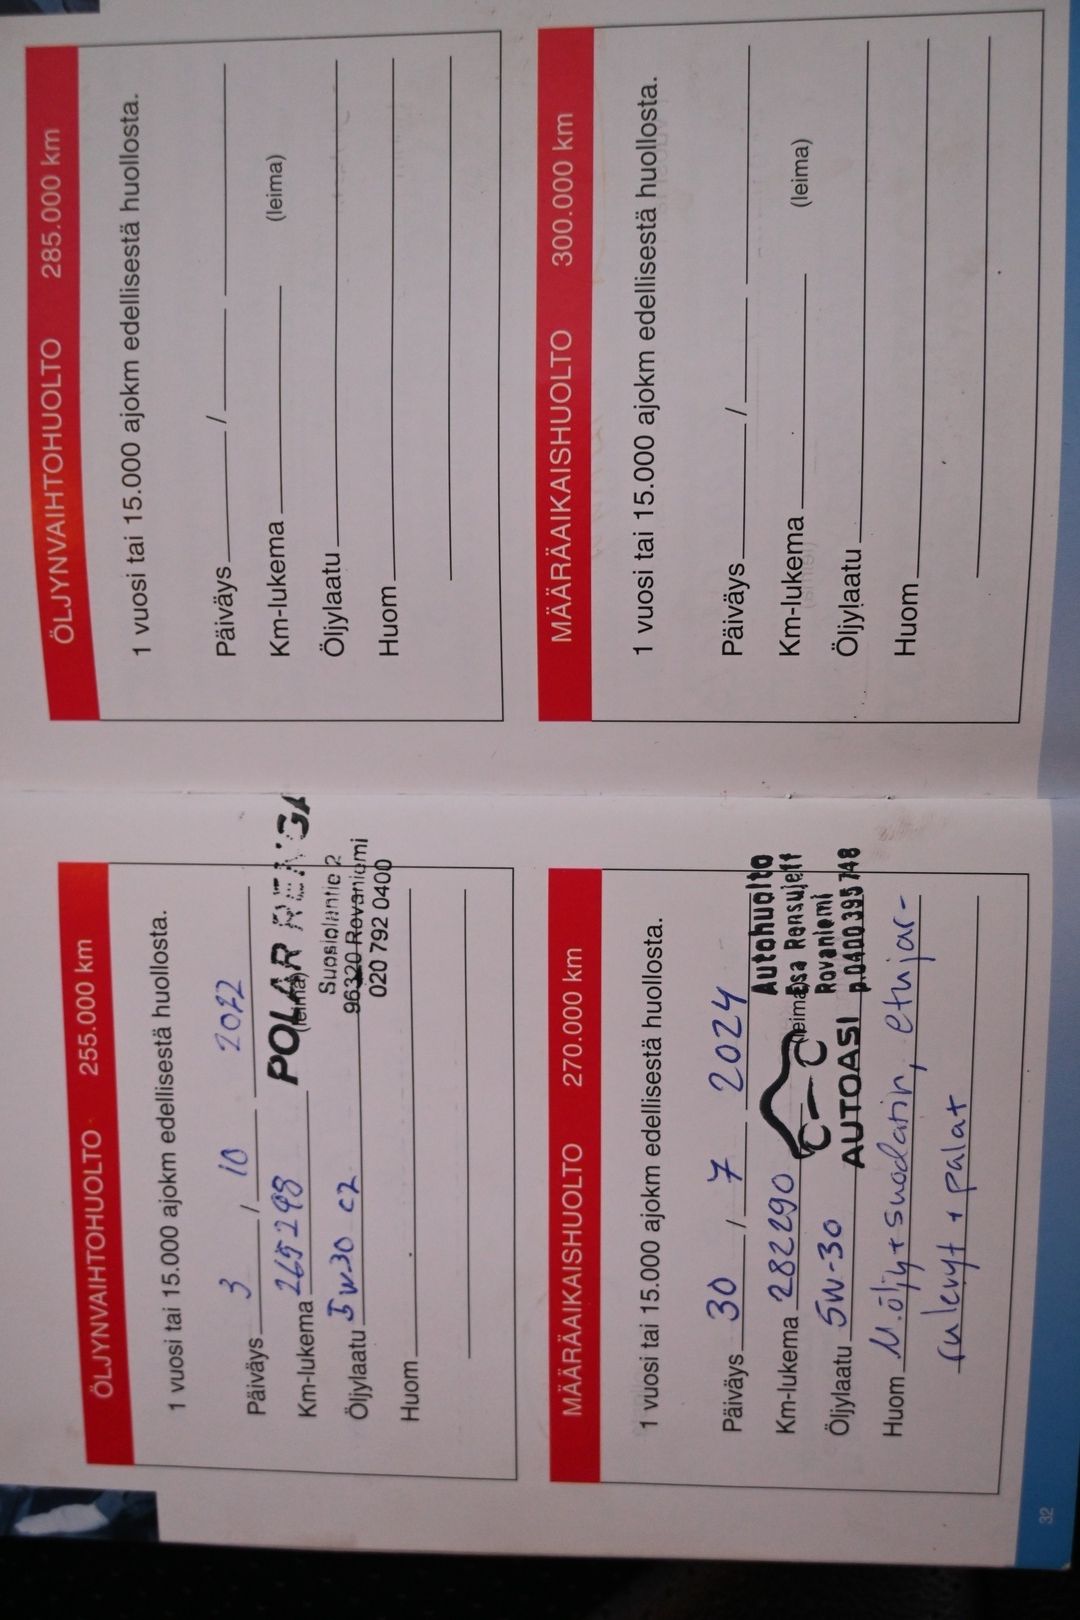 ÖLJYNVAIHTOHUOLTO 255.000 km
1 vuosi tai 15.000 ajokm edellisestä huollosta.
Päiväys 3 / 10 2022
Km-lukema 265298 (leima)
POLAR RENGA
Suosiolantie 2
96320 Rovaniemi
020 792 0400
Öljylaatu 5w30 c2
Huom
MÄÄRÄAIKAISHUOLTO 270.000 km
1 vuosi tai 15.000 ajokm edellisestä huollosta.
Päiväys 30 / 7 2024
Km-lukema 282290 (leima)
Autohuolto
Esa Rensujeff
Rovaniemi
p.0400 395 748
C–C
AUTOASI
Öljylaatu 5W-30
Huom M.öljy+suodatin, etujar-
rulevyt + palat
32
ÖLJYNVAIHTOHUOLTO 285.000 km
1 vuosi tai 15.000 ajokm edellisestä huollosta.
Päiväys /
Km-lukema (leima)
Öljylaatu
Huom
MÄÄRÄAIKAISHUOLTO 300.000 km
1 vuosi tai 15.000 ajokm edellisestä huollosta.
Päiväys /
Km-lukema (leima)
Öljylaatu
Huom